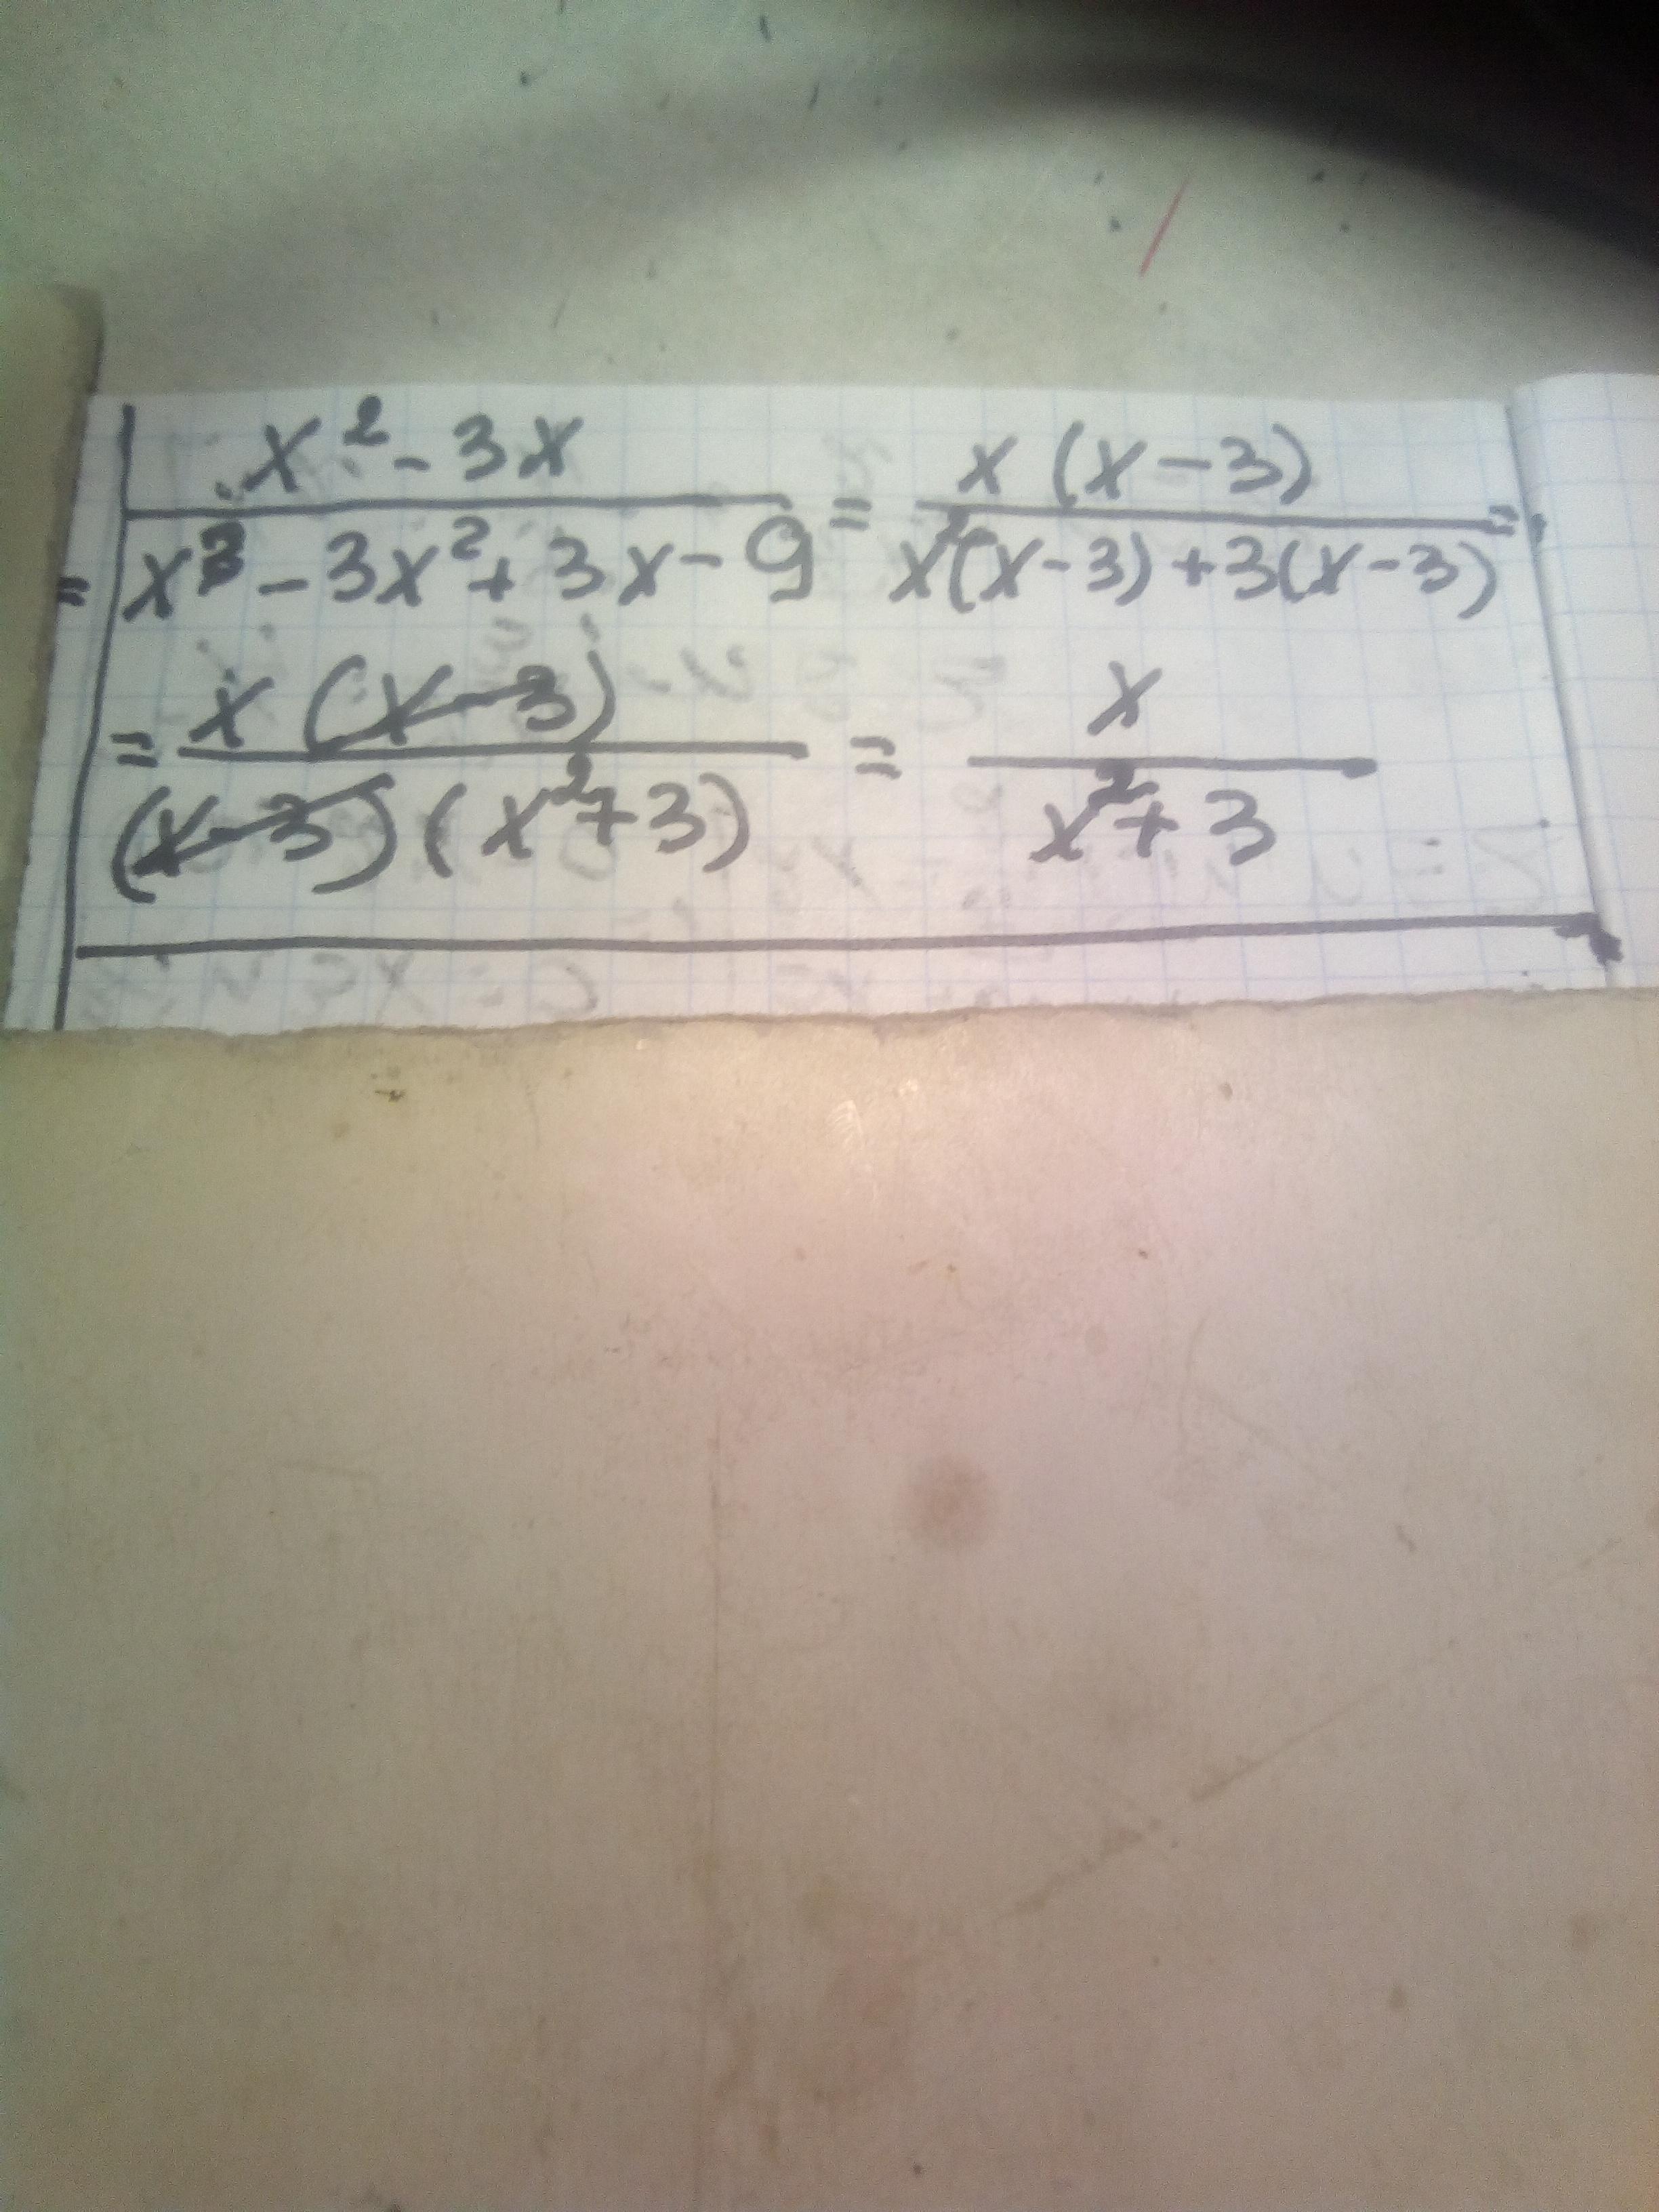 = x² - 3x / x³ - 3x² + 3x - 9 = x (x - 3) / x²(x - 3) + 3(x - 3) =
= x (x - 3) / (x - 3) (x² + 3) = x / x² + 3